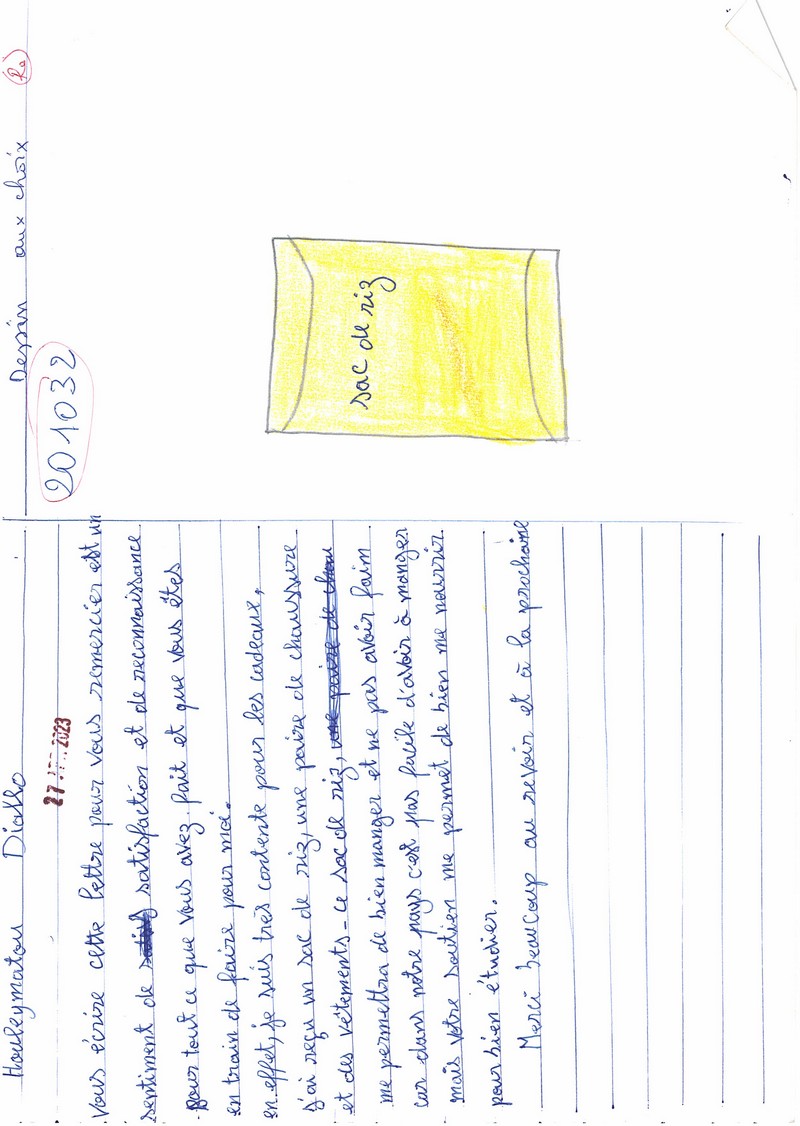 Houleymatou Diallo
27 2023
Vous écrire cette lettre pour vous remercier est un
sentiment de satisfaction et de reconnaissance
Pour tout ce que vous avez fait et que vous êtes
en train de faire pour moi.
en effet, je suis très contente pour les cadeaux,
j'ai reçu un sac de riz, une paire de chaussure
et des vêtements - ce sac de riz, une paire de chau
me permettra de bien manger et ne pas avoir faim
car dans notre pays c'est pas facile d'avoir à manger
mais votre soutien me permet de bien me nourrir.
pour bien étudier.
Merci beaucoup au revoir et à la prochaine
Dessin aux choix
201032
sac de riz